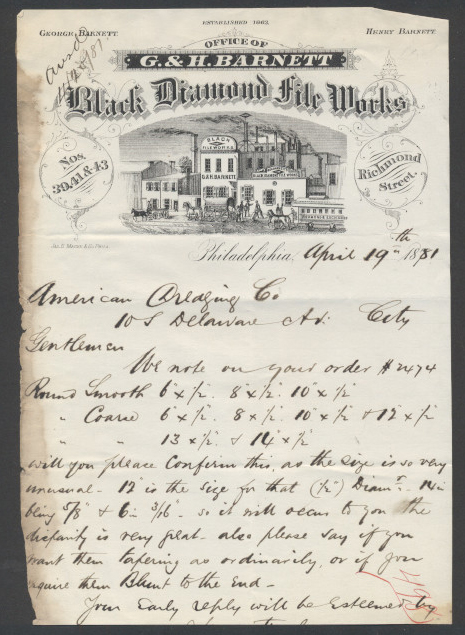 ESTABLISHED 1863.
GEORGE BARNETT
HENRY BARNETT
OFFICE OF
G. & H. BARNETT
Black Diamond File Works
Nos. 39, 41 & 43
Richmond Street.
BLACK
FILE WORKS
G.& H. BARNETT
Philadelphia, April 19th 1881
American Dredging Co
10 S Delaware Av: City
Gentlemen
We note on your order #2474
Round Smooth 6" x 1/2. 8" x 1/2. 10" x 1/2
" Coarse 6" x 1/2. 8 x 1/2. 10" x 1/2 & 12" x 1/2
" " 13 x 1/2. & 14" x 1/2
will you please Confirm this, as the size is so very
unusual - 12" is the size for that (1/2") Diamr. 14 in
being 5/8" & 6 in 3/16 - so it will occur to you the
disparity is very great - also please say if you
want them tapering as ordinarily, or if you
require them Blunt to the End -
Your Early reply will be Esteemed by